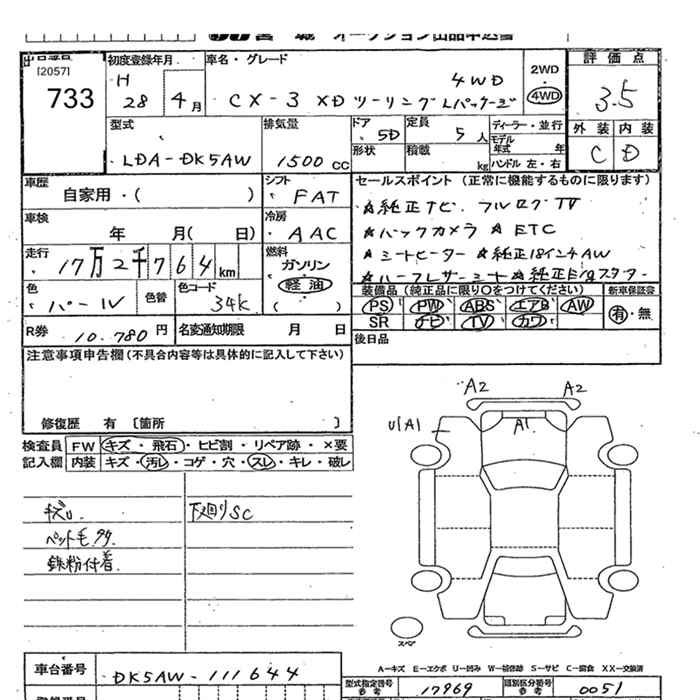 宮城 オークション出品申込書
出品番号 初度登録年月 車名・グレード 評価点
[2057] H 2WD
733 28 4月 CX-3 XD ツーリングLパッケージ 4WD 4WD 3.5
型式 排気量 ドア 5D 定員 5人 ディーラー・並行 外装 内装
LDA-DK5AW 1500cc 形状 積載 kg モデル年式 年 C D
ハンドル 左・右
車歴 自家用・( ) シフト FAT セールスポイント (正常に機能するものに限ります)
車検 年 月( 日) 冷房 AAC ☆純正ナビ フルセグTV
☆バックカメラ ☆ETC
走行 17万2千764km 燃料 ガソリン 軽油 ( ) ☆シートヒーター ☆純正18インチAW
☆ハーフレザーシート☆純正Engスターター
色 パール 色替 色コード 34K 装備品 (純正品に限り○をつけてください) 新車保証書
PS PW ABS エアB AW 有・無
R券 10,780円 名変通知期限 月 日 SR ナビ TV カワ
後日品
注意事項申告欄(不具合内容等は具体的に記入して下さい)
修復歴 有 〔箇所 〕
検査員 FW キズ・飛石・ヒビ割・リペア跡・×要
記入欄 内装 キズ・汚レ・コゲ・穴・スレ・キレ・破レ
A2 A2
U1A1 A1
下廻りSC
ペット毛多々
鉄粉付着
スペア
A-キズ E-エクボ U-凹み W-補修跡 S-サビ C-腐食 XX-交換済
車台番号 DK5AW-111644
型式指定番号 参考 17969 類別区分番号 参考 0051